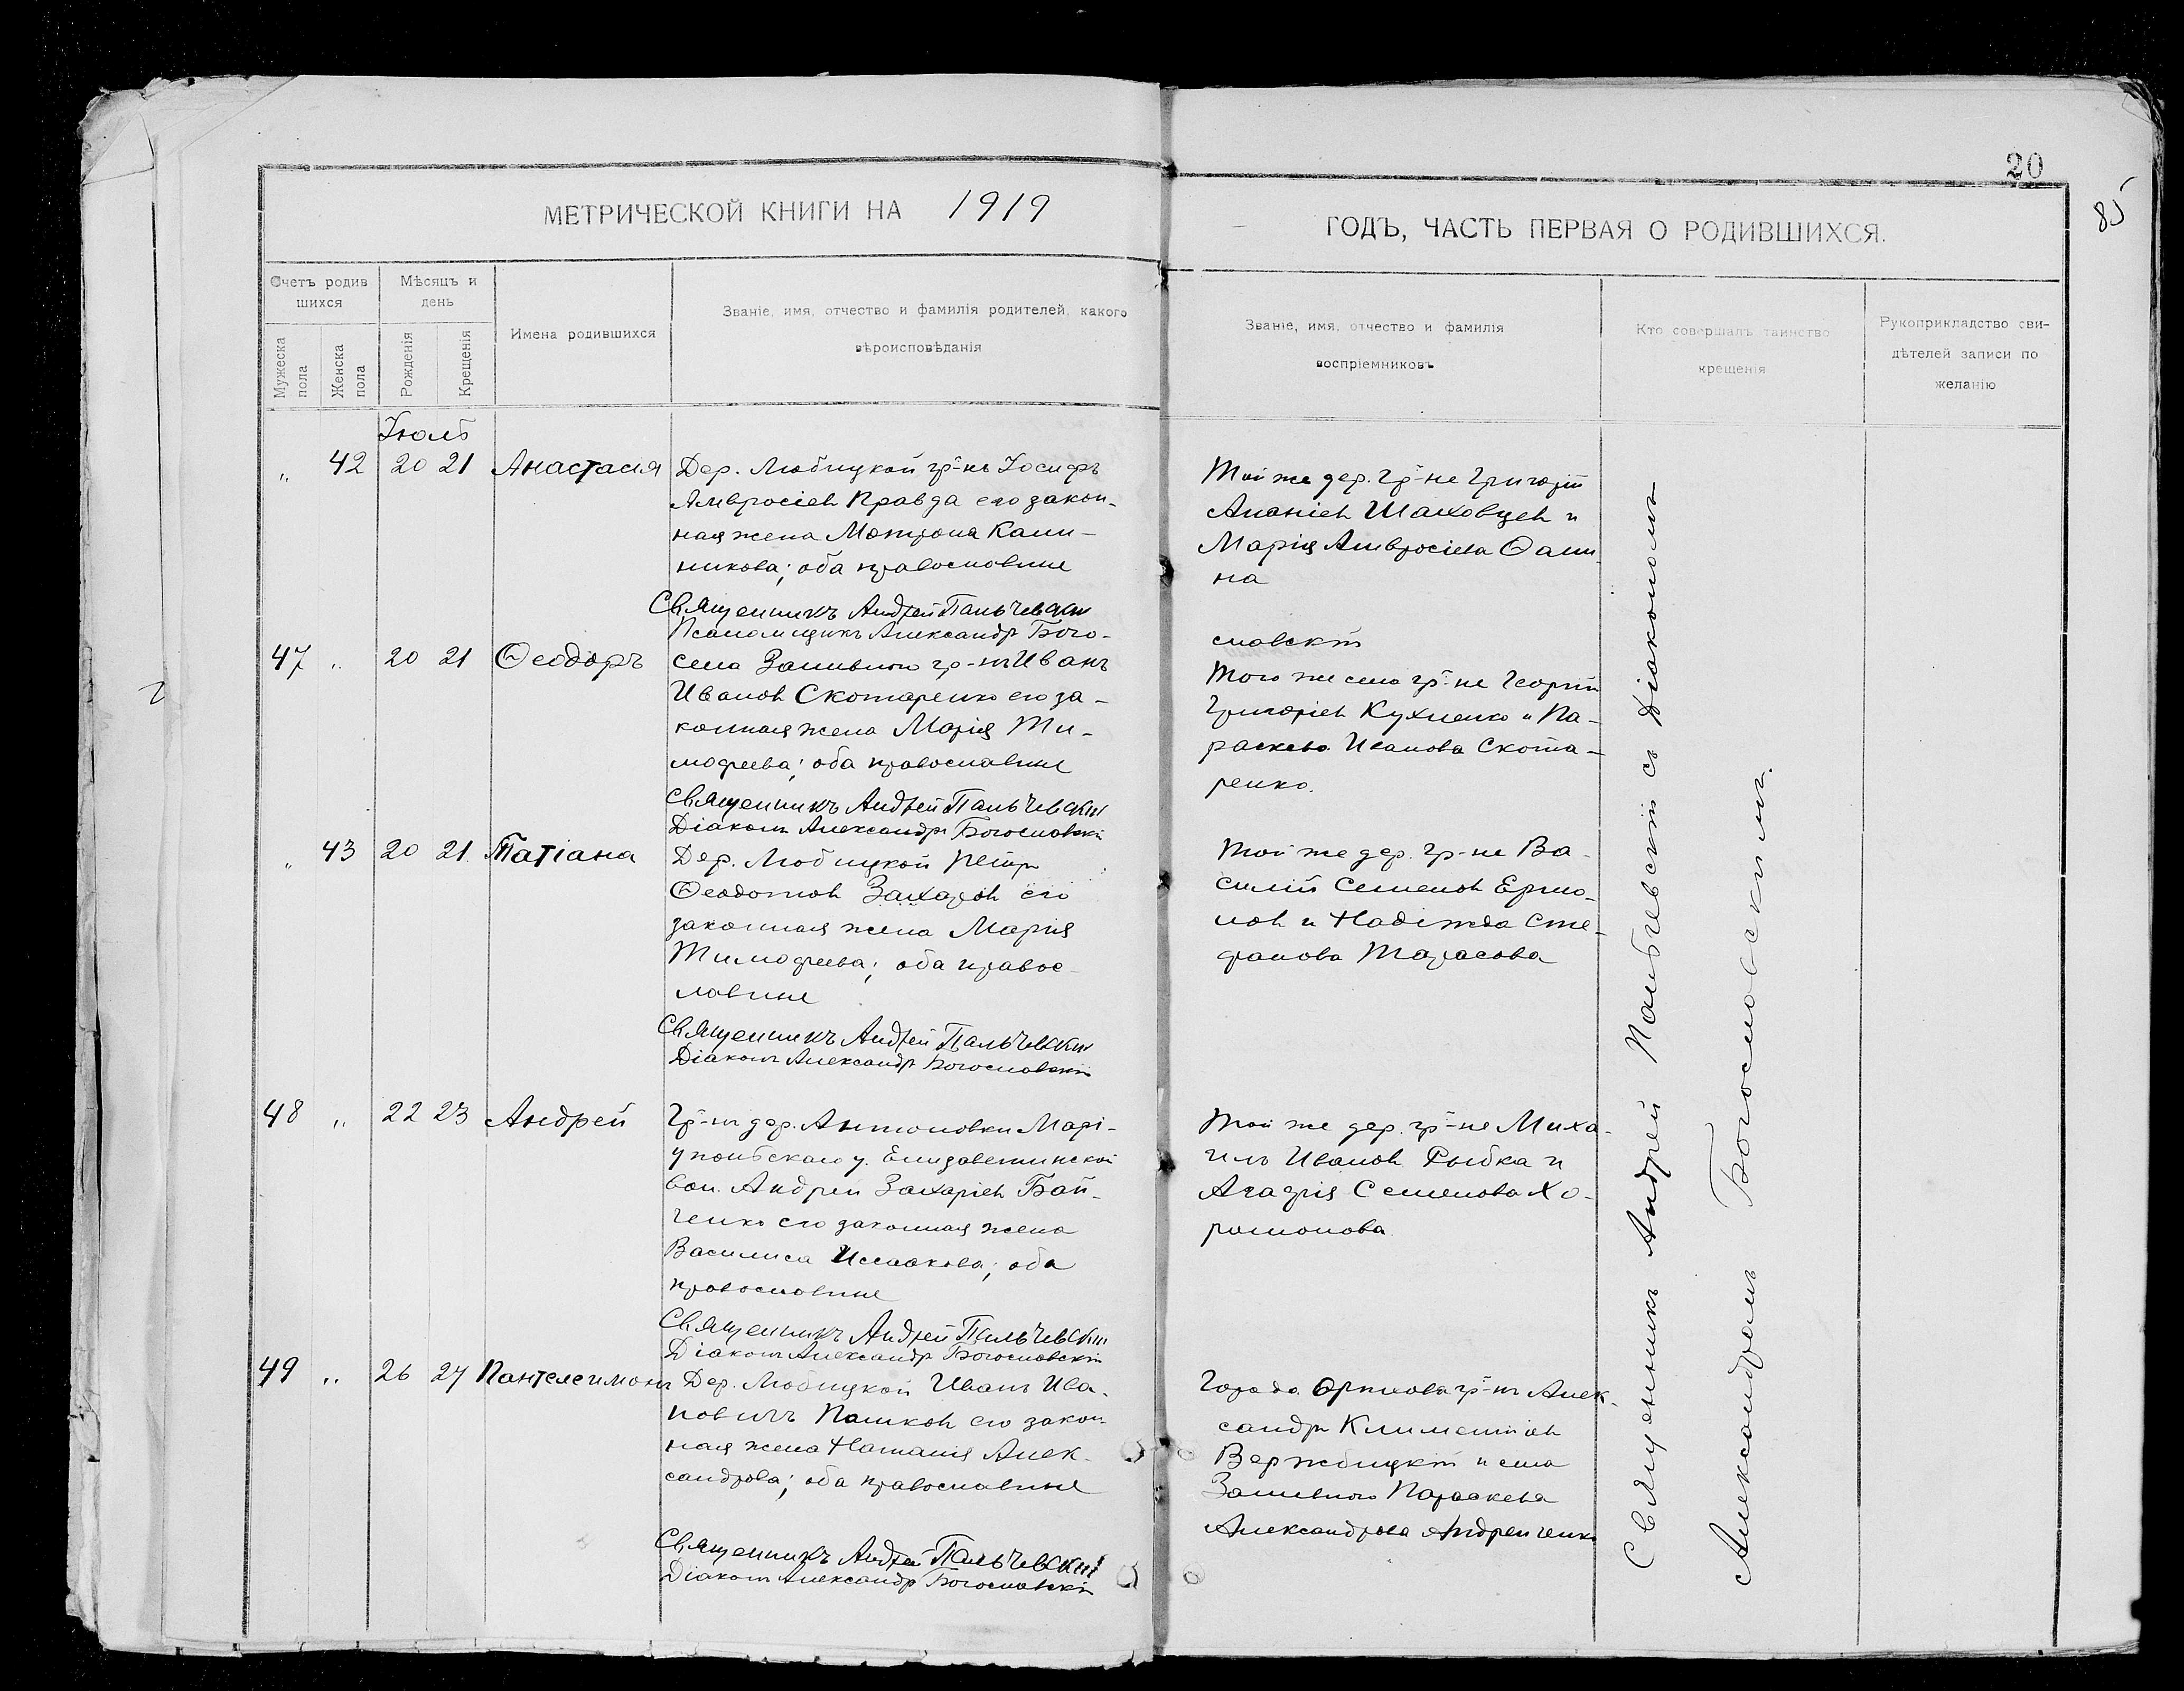 20
85
МЕТРИЧЕСКОЙ КНИГИ НА 1919
ГОДЪ, ЧАСТЬ ПЕРВАЯ О РОДИВШИХСЯ.
Счетъ родив
шихся
Мужеска
пола
Женска
пола
Мѣсяцъ и
день
Рожденія
Крещенія
Имена родившихся
Званіе, имя, отчество и фамилія родителей, какого
вѣроисповѣданія
Званіе, имя, отчество и фамилія
воспріемниковъ
Кто совершалъ таинство
крещенія
Рукоприкладство сви-
дѣтелей записи по
желанію
Іюль
„ 42 20 21 Анастасія
Дер. Любицкой гр-нъ Іосифъ
Амвросіев Правда его закон-
ная жена Матрона Калин-
никова; оба православные
Священникъ Андрей Пальчевскій
Псаломщикъ Александръ Бого-
Той же дер. гр-не Григорій
Ананіев Шаховцев и
Марія Амвросіева
на
словскій
47 „ 20 21 Ѳеодоръ
села Заливного гр-нъ Иванъ
Иванов Скотаренко его за-
конная жена Марія Ти-
мофеева; оба православные
Священникъ Андрей Пальчевскій
Діаконъ Александръ Богословскій
Того же села гр-не Георгій
Григоріев Кухленко и Па-
раскева Иванова Скота-
ренко.
„ 43 20 21 Татіана
Дер. Любицкой Петръ
Ѳеодотов Захаров его
законная жена Марія
Тимофеева; оба правос-
лавные
Священникъ Андрей Пальчевскій
Діаконъ Александръ Богословскій
Той же дер. гр-не Ва-
силій Семенов Ермо-
лов и Надежда Сте-
фанова Тарасова
48 „ 22 23 Андрей
Гр-нъ дер. Антоновки Марі-
упольскаго у. Елизаветинской
вол. Андрей Захаріев Бай-
ченко его законная жена
Василиса Исаакова; оба
православные
Священникъ Андрей Пальчевскій
Діаконъ Александръ Богословскій
Той же дер. гр-не Миха-
илъ Иванов Рыбка и
Агафія Семенова Хо-
ролонова
49 „ 26 27 Пантелеимонъ
Дер. Любицкой Иванъ Ива-
новичъ Пашков его закон-
ная жена Наталія Алек-
сандрова; оба православные
Священникъ Андрей Пальчевскій
Діаконъ Александръ Богословскій
Города Орѣхова гр-нъ Алек-
сандръ Климентіев
Вержбицкій и села
Заливного Параскева
Александрова Андрейченко
Священникъ Андрей Пальчевскій съ Діакономъ
Александромъ Богословскимъ.